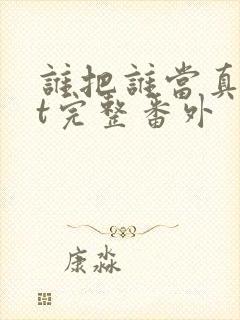 誰把誰當真
t完整番外
康淼